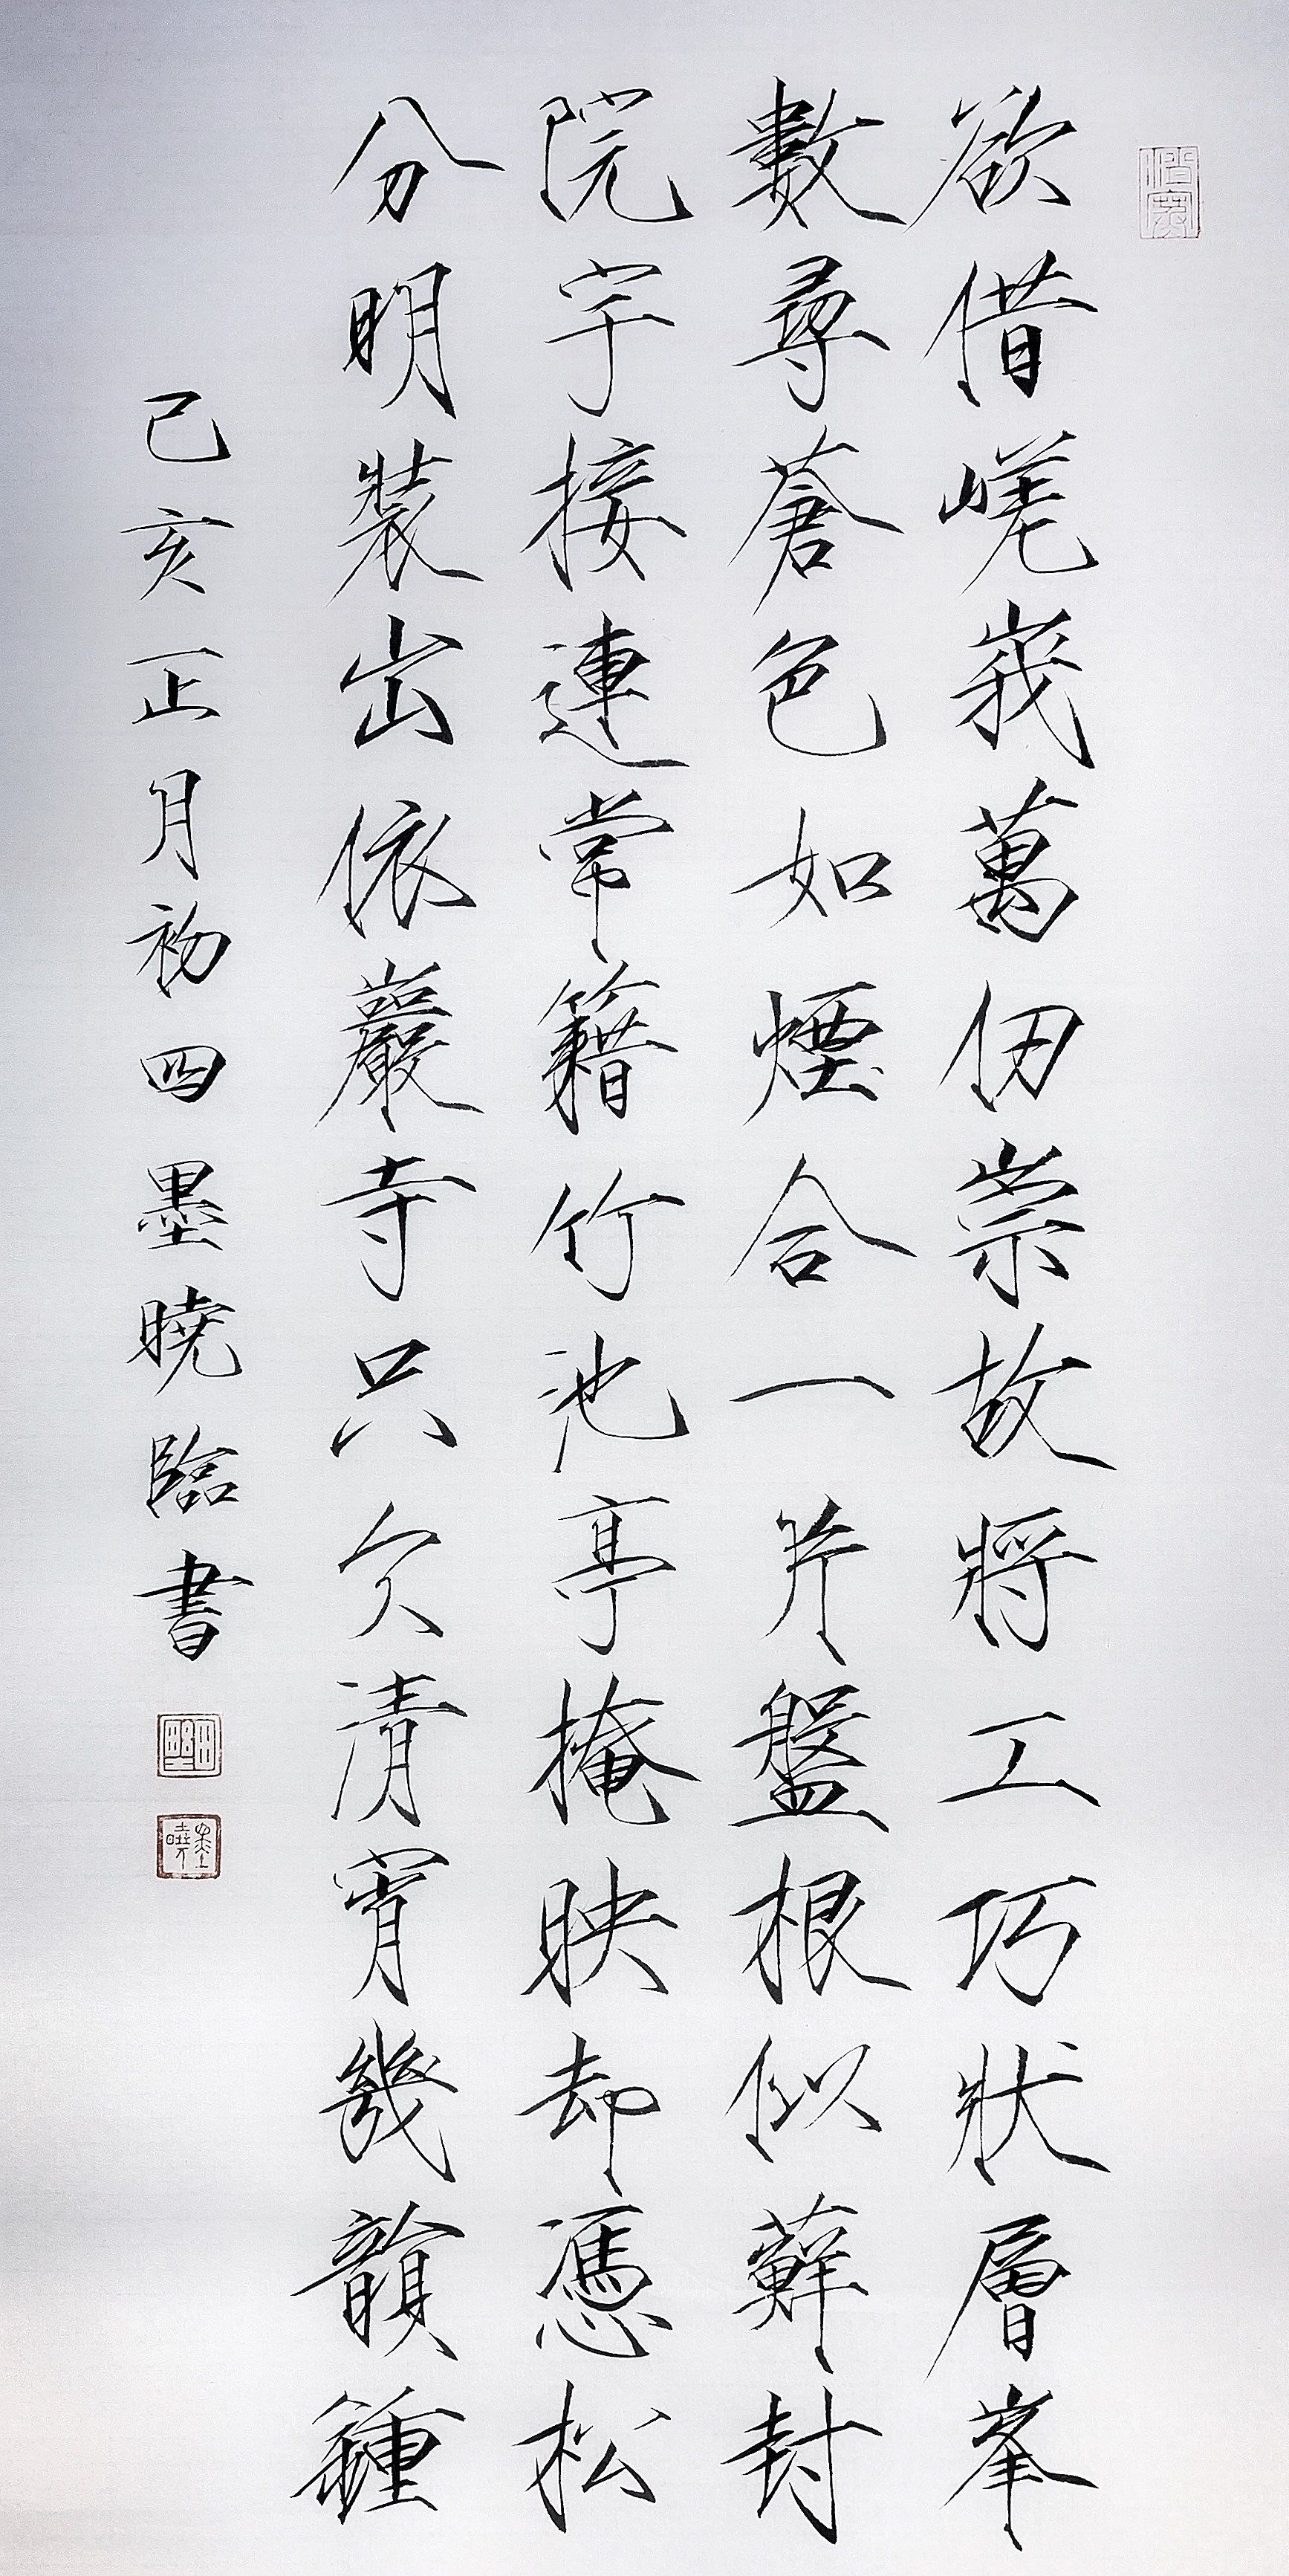 欲借嵯峩萬仞崇故將工巧狀層峯
數尋蒼色如煙合一片盤根似蘚封
院宇接連常籍竹池亭掩映却憑松
分明裝出依巖寺只欠清宵幾韻鍾
己亥正月初四墨曉臨書
墨曉